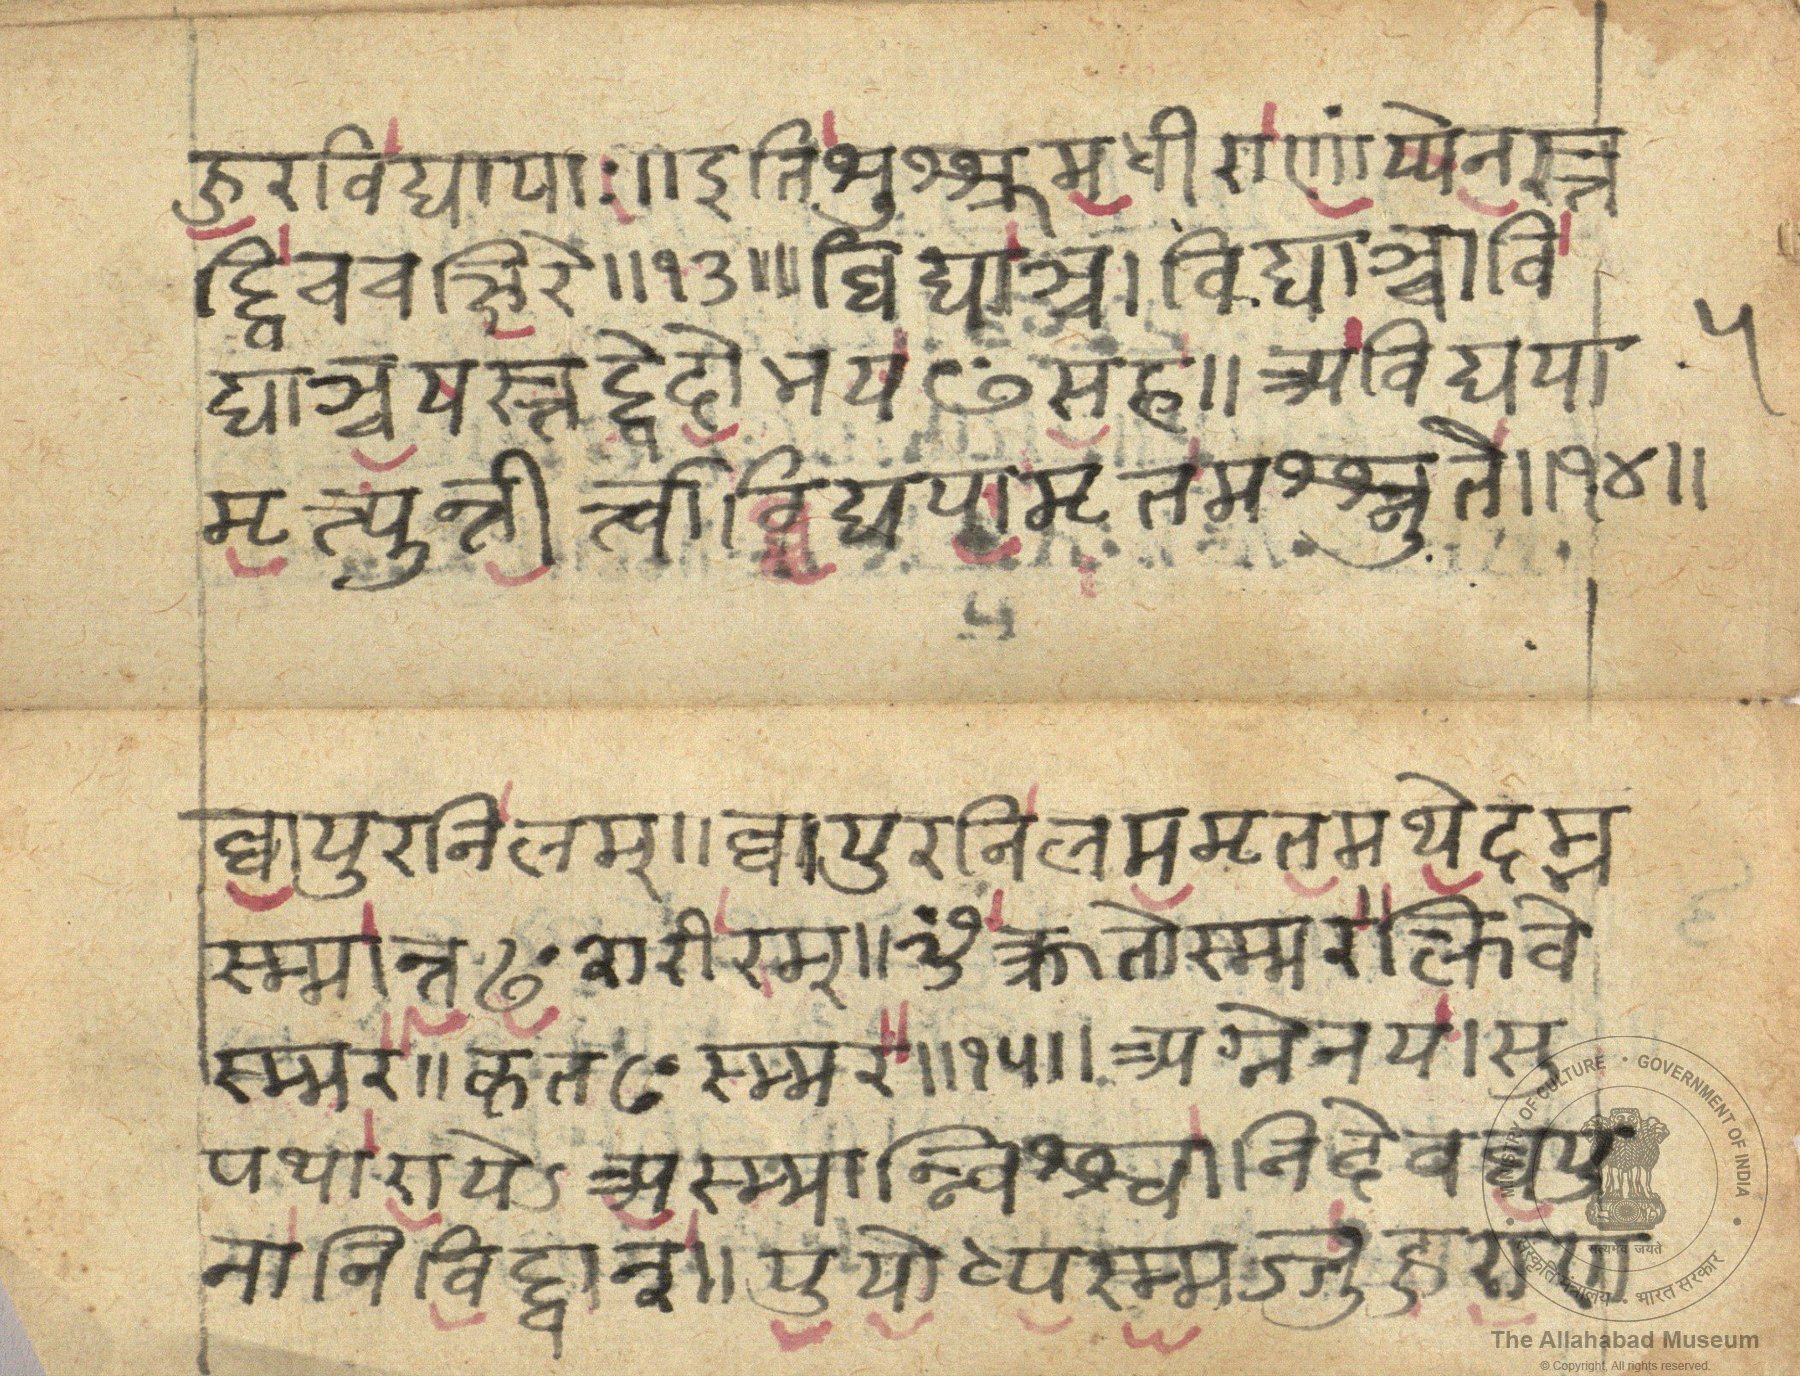 हुरविद्यायाः॥इतिशुश्श्रुमधीराणांय्येनस्त
द्विचचक्षिरे॥१३॥विद्याञ्च।विद्याञ्चावि
द्याञ्चयस्तद्वेदोभयᳪसह॥अविद्यया
५
मृत्युन्तीर्त्त्वाविद्ययामृतमश्श्नुते॥१४॥
५
व्वायुरनिलम्॥व्वायुरनिलममृतमथेदम्भ
स्म्मान्तᳪशरीरम्॥ॐक्रतोस्म्मरक्लिवे
स्म्मर॥कृतᳪस्म्मर॥१५॥अग्ग्नेनयसु
पथारायेऽअस्म्मान्विश्श्वानिदेवव्वयु
नानिविद्वान्॥युयोद्ध्यस्म्मज्जुहुराण
MINISTRY OF CULTURE · GOVERNMENT OF INDIA
सत्यमेव जयते
संस्कृति मंत्रालय · भारत सरकार
The Allahabad Museum
© Copyright, All rights reserved.